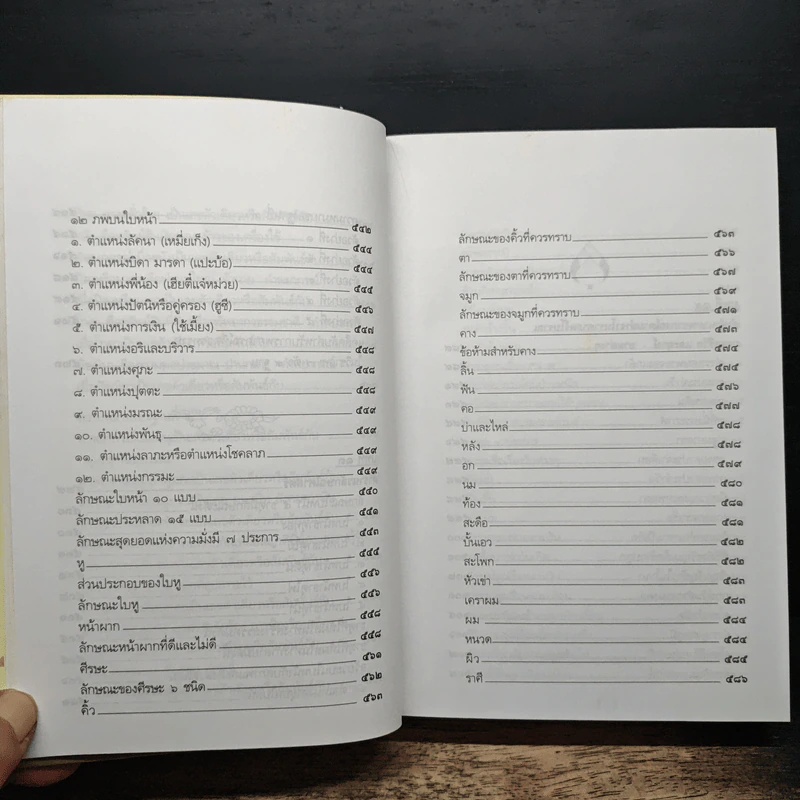 ๑๒ ภพบนใบหน้า ๕๔๒
๑. ตำแหน่งลัคนา (เหมี่ยเก็ง) ๕๔๔
๒. ตำแหน่งบิดา มารดา (แปะบ้อ) ๕๔๔
๓. ตำแหน่งพี่น้อง (เฮียตี๋แจ้หม่วย) ๕๔๕
๔. ตำแหน่งปัตนิหรือคู่ครอง (ฮูซี) ๕๔๖
๕. ตำแหน่งการเงิน (ใช้เมี้ยง) ๕๔๗
๖. ตำแหน่งอริและบริวาร ๕๔๘
๗. ตำแหน่งศุภะ ๕๔๘
๘. ตำแหน่งปุตตะ ๕๔๘
๙. ตำแหน่งมรณะ ๕๔๙
๑๐. ตำแหน่งพันธุ ๕๔๙
๑๑. ตำแหน่งลาภะหรือตำแหน่งโชคลาภ ๕๔๙
๑๒. ตำแหน่งกรรมะ ๕๔๙
ลักษณะใบหน้า ๑๐ แบบ ๕๕๐
ลักษณะประหลาด ๑๕ แบบ ๕๕๑
ลักษณะสุดยอดแห่งความมั่งมี ๗ ประการ ๕๕๓
หู ๕๕๕
ส่วนประกอบของใบหู ๕๕๖
ลักษณะใบหู ๕๕๖
หน้าผาก ๕๕๘
ลักษณะหน้าผากที่ดีและไม่ดี ๕๕๘
ศีรษะ ๕๖๑
ลักษณะของศีรษะ ๖ ชนิด ๕๖๒
คิ้ว ๕๖๓
ลักษณะของคิ้วที่ควรทราบ ๕๖๓
ตา ๕๖๖
ลักษณะของตาที่ควรทราบ ๕๖๗
จมูก ๕๖๙
ลักษณะของจมูกที่ควรทราบ ๕๗๑
คาง ๕๗๓
ข้อห้ามสำหรับคาง ๕๗๔
ลิ้น ๕๗๕
ฟัน ๕๗๖
คอ ๕๗๗
บ่าและไหล่ ๕๗๘
หลัง ๕๗๘
อก ๕๗๙
นม ๕๘๐
ท้อง ๕๘๑
สะดือ ๕๘๑
บั้นเอว ๕๘๒
สะโพก ๕๘๒
หัวเข่า ๕๘๓
เคราผม ๕๘๓
ผม ๕๘๔
หนวด ๕๘๔
ผิว ๕๘๕
ราศี ๕๘๖